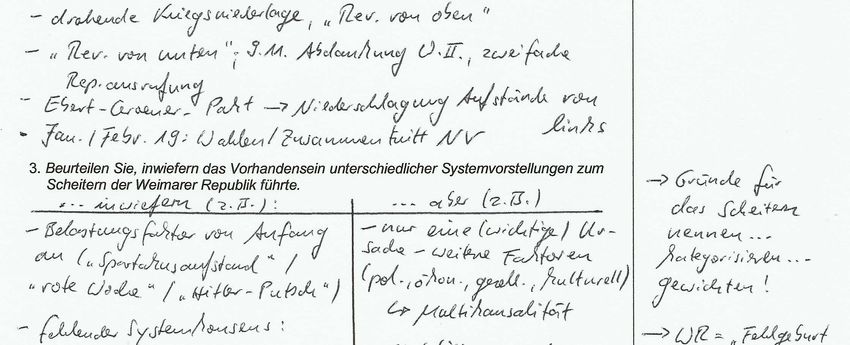 - drohende Kriegsniederlage, „Rev. von oben"
- „Rev. von unten"; 9.11. Abdankung W.II., zweifache
Rep.ausrufung
- Ebert-Groener-Pakt → Niederschlagung Aufstände von
links
- Jan./Febr. 19: Wahlen/Zusammentritt NV
3. Beurteilen Sie, inwiefern das Vorhandensein unterschiedlicher Systemvorstellungen zum
Scheitern der Weimarer Republik führte.
... inwiefern (z.B.):
- Belastungsfaktor von Anfang
an („Spartakusaufstand"/
"rote Woche"/„Hitler-Putsch")
- fehlender Systemkonsens:
... aber (z.B.)
- nur eine (wichtige) Ur-
sache - weitere Faktoren
(pol., ökon., gesell., kulturell)
↳ Multikausalität
→ Gründe für
das Scheitern
nennen...
kategorisieren...
gewichten!
→ WR = „Fehlgeburt